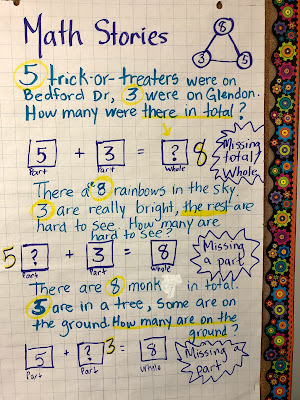 Math Stories
8
3 5
5 trick-or-treaters were on
Bedford Dr, 3 were on Glendon.
How many were there in total?
5 + 3 = ? 8
Part Part Whole
Missing
total/
Whole
There are 8 rainbows in the sky.
3 are really bright, the rest are
hard to see. How many are
hard to see?
5 ? + 3 = 8
Part Part Whole
Missing
a part
There are 8 monk in total.
5 are in a tree, some are on
the ground. How many are on the
ground?
5 + ? 3 = 8
Part Part Whole
Missing a
part